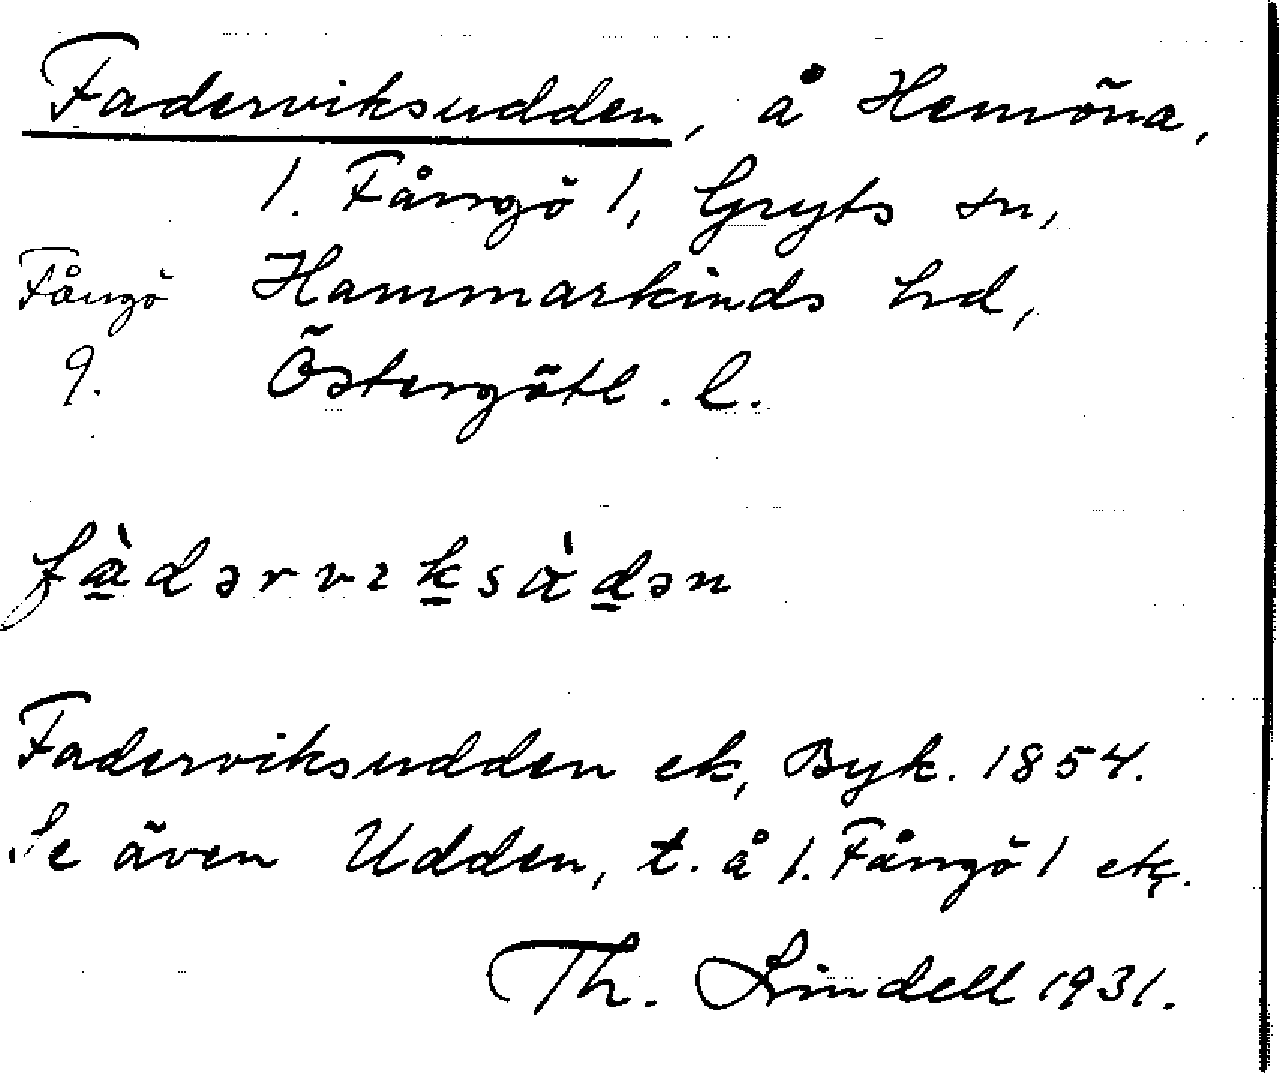 Faderviksudden, å Hemöna,
1. Fångö 1, Gryts sn,
Fångö Hammarkinds hd,
9. Östergötl. l.
fàdərvɩksàdən
Faderviksudden ek, Byk. 1854.
Se även Udden, t. å 1. Fångö 1 ek.
Th. Lindell 1931.